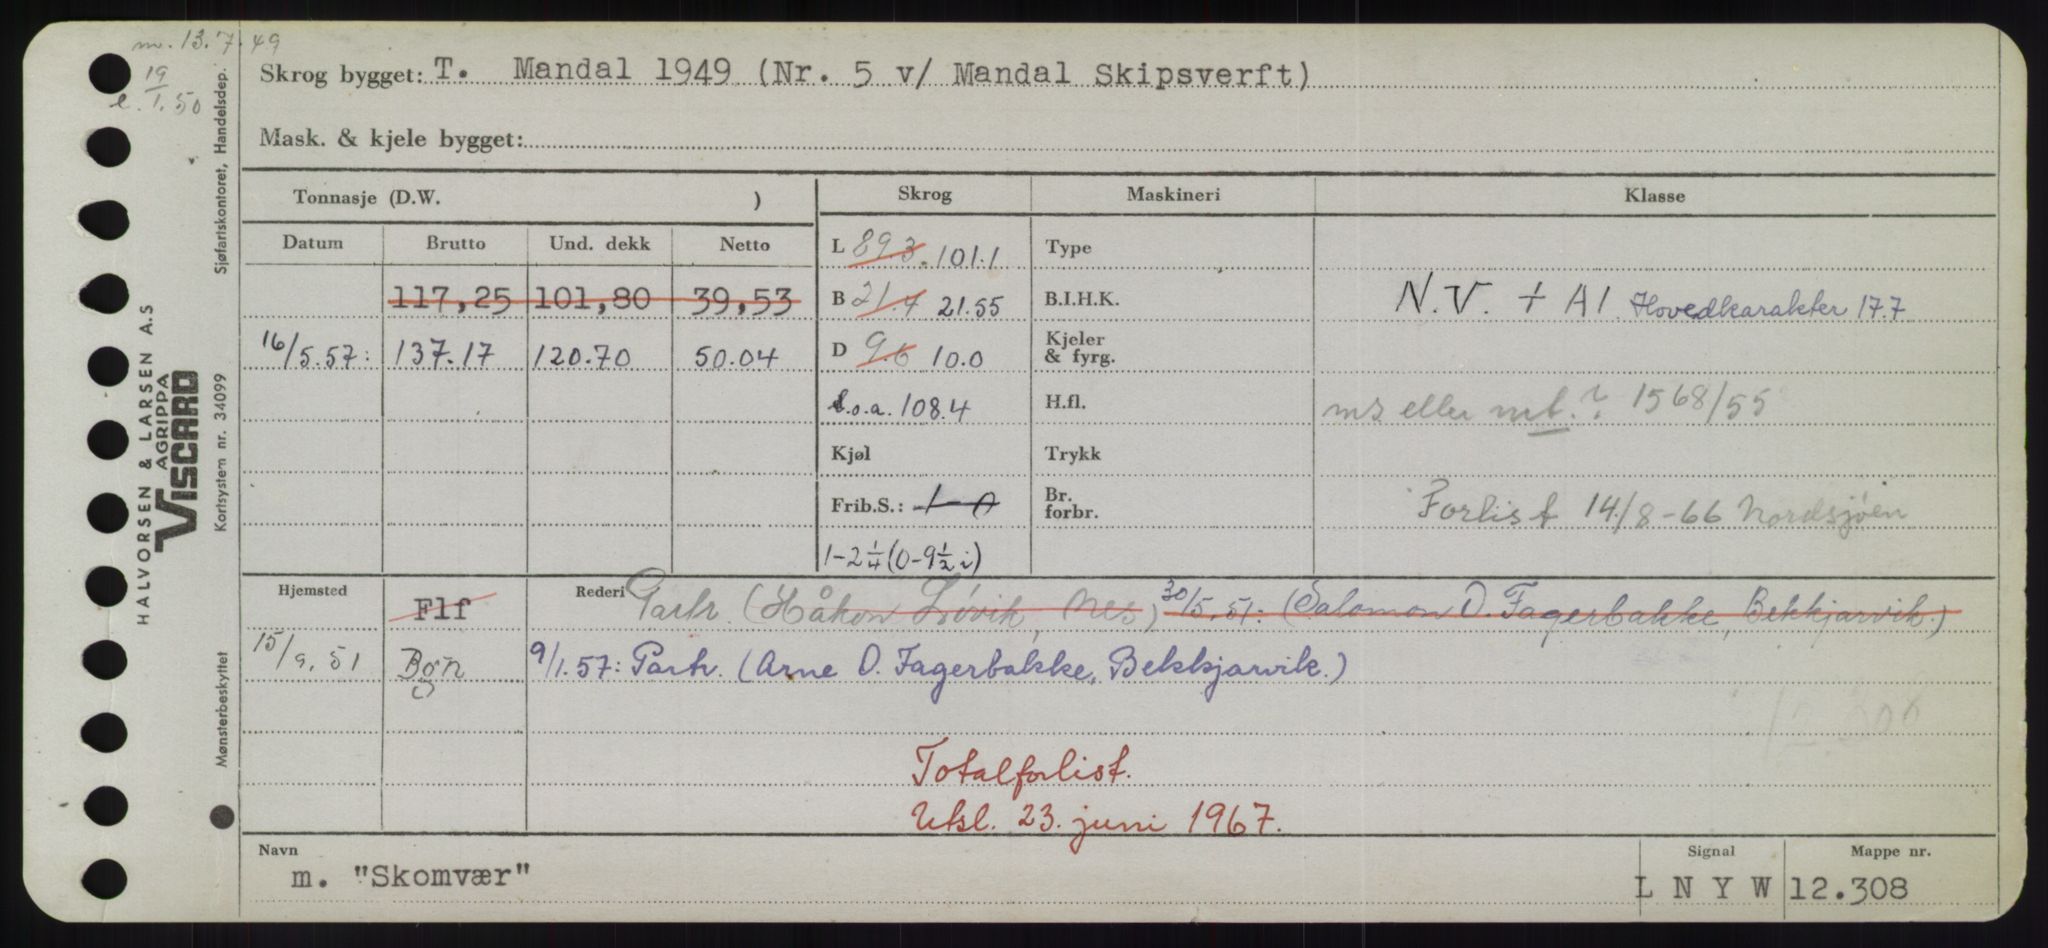 m. 13.7.49
19
e. 1.50
Skrog bygget: T. Mandal 1949 (Nr. 5 v/ Mandal Skipsverft)
Mask. & kjele bygget:
Tonnasje (D.W. )
Skrog
Maskineri
Klasse
Datum
Brutto
Und. dekk
Netto
L 89.3 101.1
Type
117,25 101,80 39,53
B 21.4 21.55
B.I.H.K.
N.V. + A1 Hovedkarakter 17.7
16/5.57: 137.17 120.70 50.04
D 9.6 10.0
Kjeler
& fyrg.
L.o.a. 108.4
H.fl.
ms eller mt.? 1568/55
Kjøl
Trykk
Frib.S.: 1-0
Br.
forbr.
Forlist 14/8-66 Nordsjøen
1-2 1/4 (0-9 1/2 i)
Hjemsted
Flf
Rederi Partr. (Håkon Løvik, Nes) 30/5.51: (Salomon O. Fagerbakke, Bekkjarvik.)
15/9.51 Bgn 9/1.57: Partr. (Arne O. Fagerbakke, Bekkjarvik.)
12.308
Totalforlist.
Utsl. 23. juni 1967.
Navn
m. "Skomvær"
Signal
L N Y W
Mappe nr.
12.308
HALVORSEN & LARSEN A.S
AGRIPPA
VISCARD
Sjøfartskontoret, Handelsdep.
Kortsystem nr. 34099
Mønsterbeskyttet